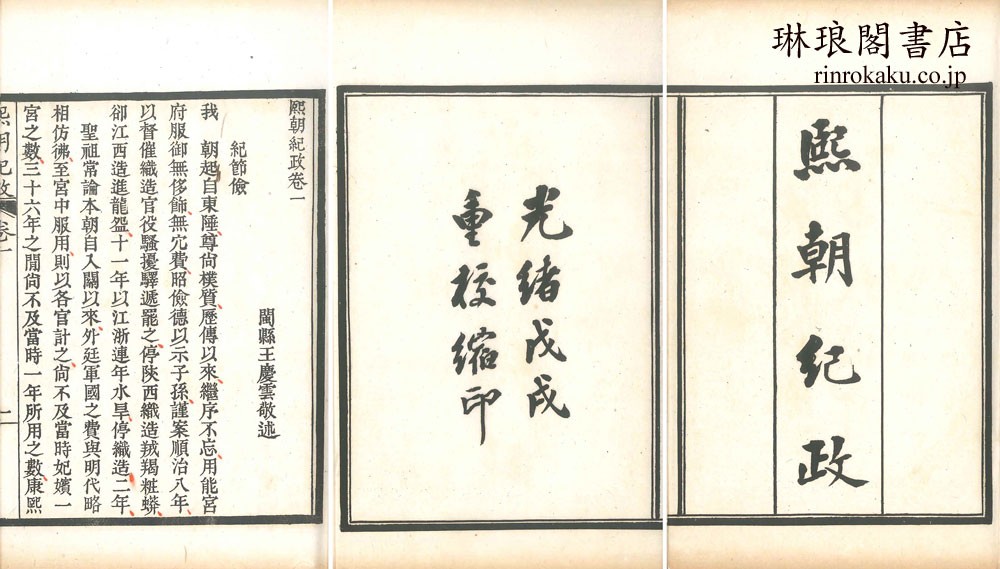 琳琅閣書店
rinrokaku.co.jp
熙朝紀政
光緒戊戌
重校縮印
熙朝紀政卷一
閩縣王慶雲敬述
紀節儉
我　朝起自東陲尊尚樸質歷傳以來繼序不忘用能宮
府服御無侈飾無宂費昭儉德以示子孫謹案順治八年
以督催織造官役騷擾驛遞罷之停陝西織造羢羯粧蟒
卻江西造進龍盌十一年以江浙連年水旱停織造二年
聖祖常論本朝自入關以來外廷軍國之費與明代略
相仿彿至宮中服用則以各官計之尙不及當時妃嬪一
宮之數三十六年之閒尙不及當時一年所用之數康熙
熙朝紀政 卷一 一